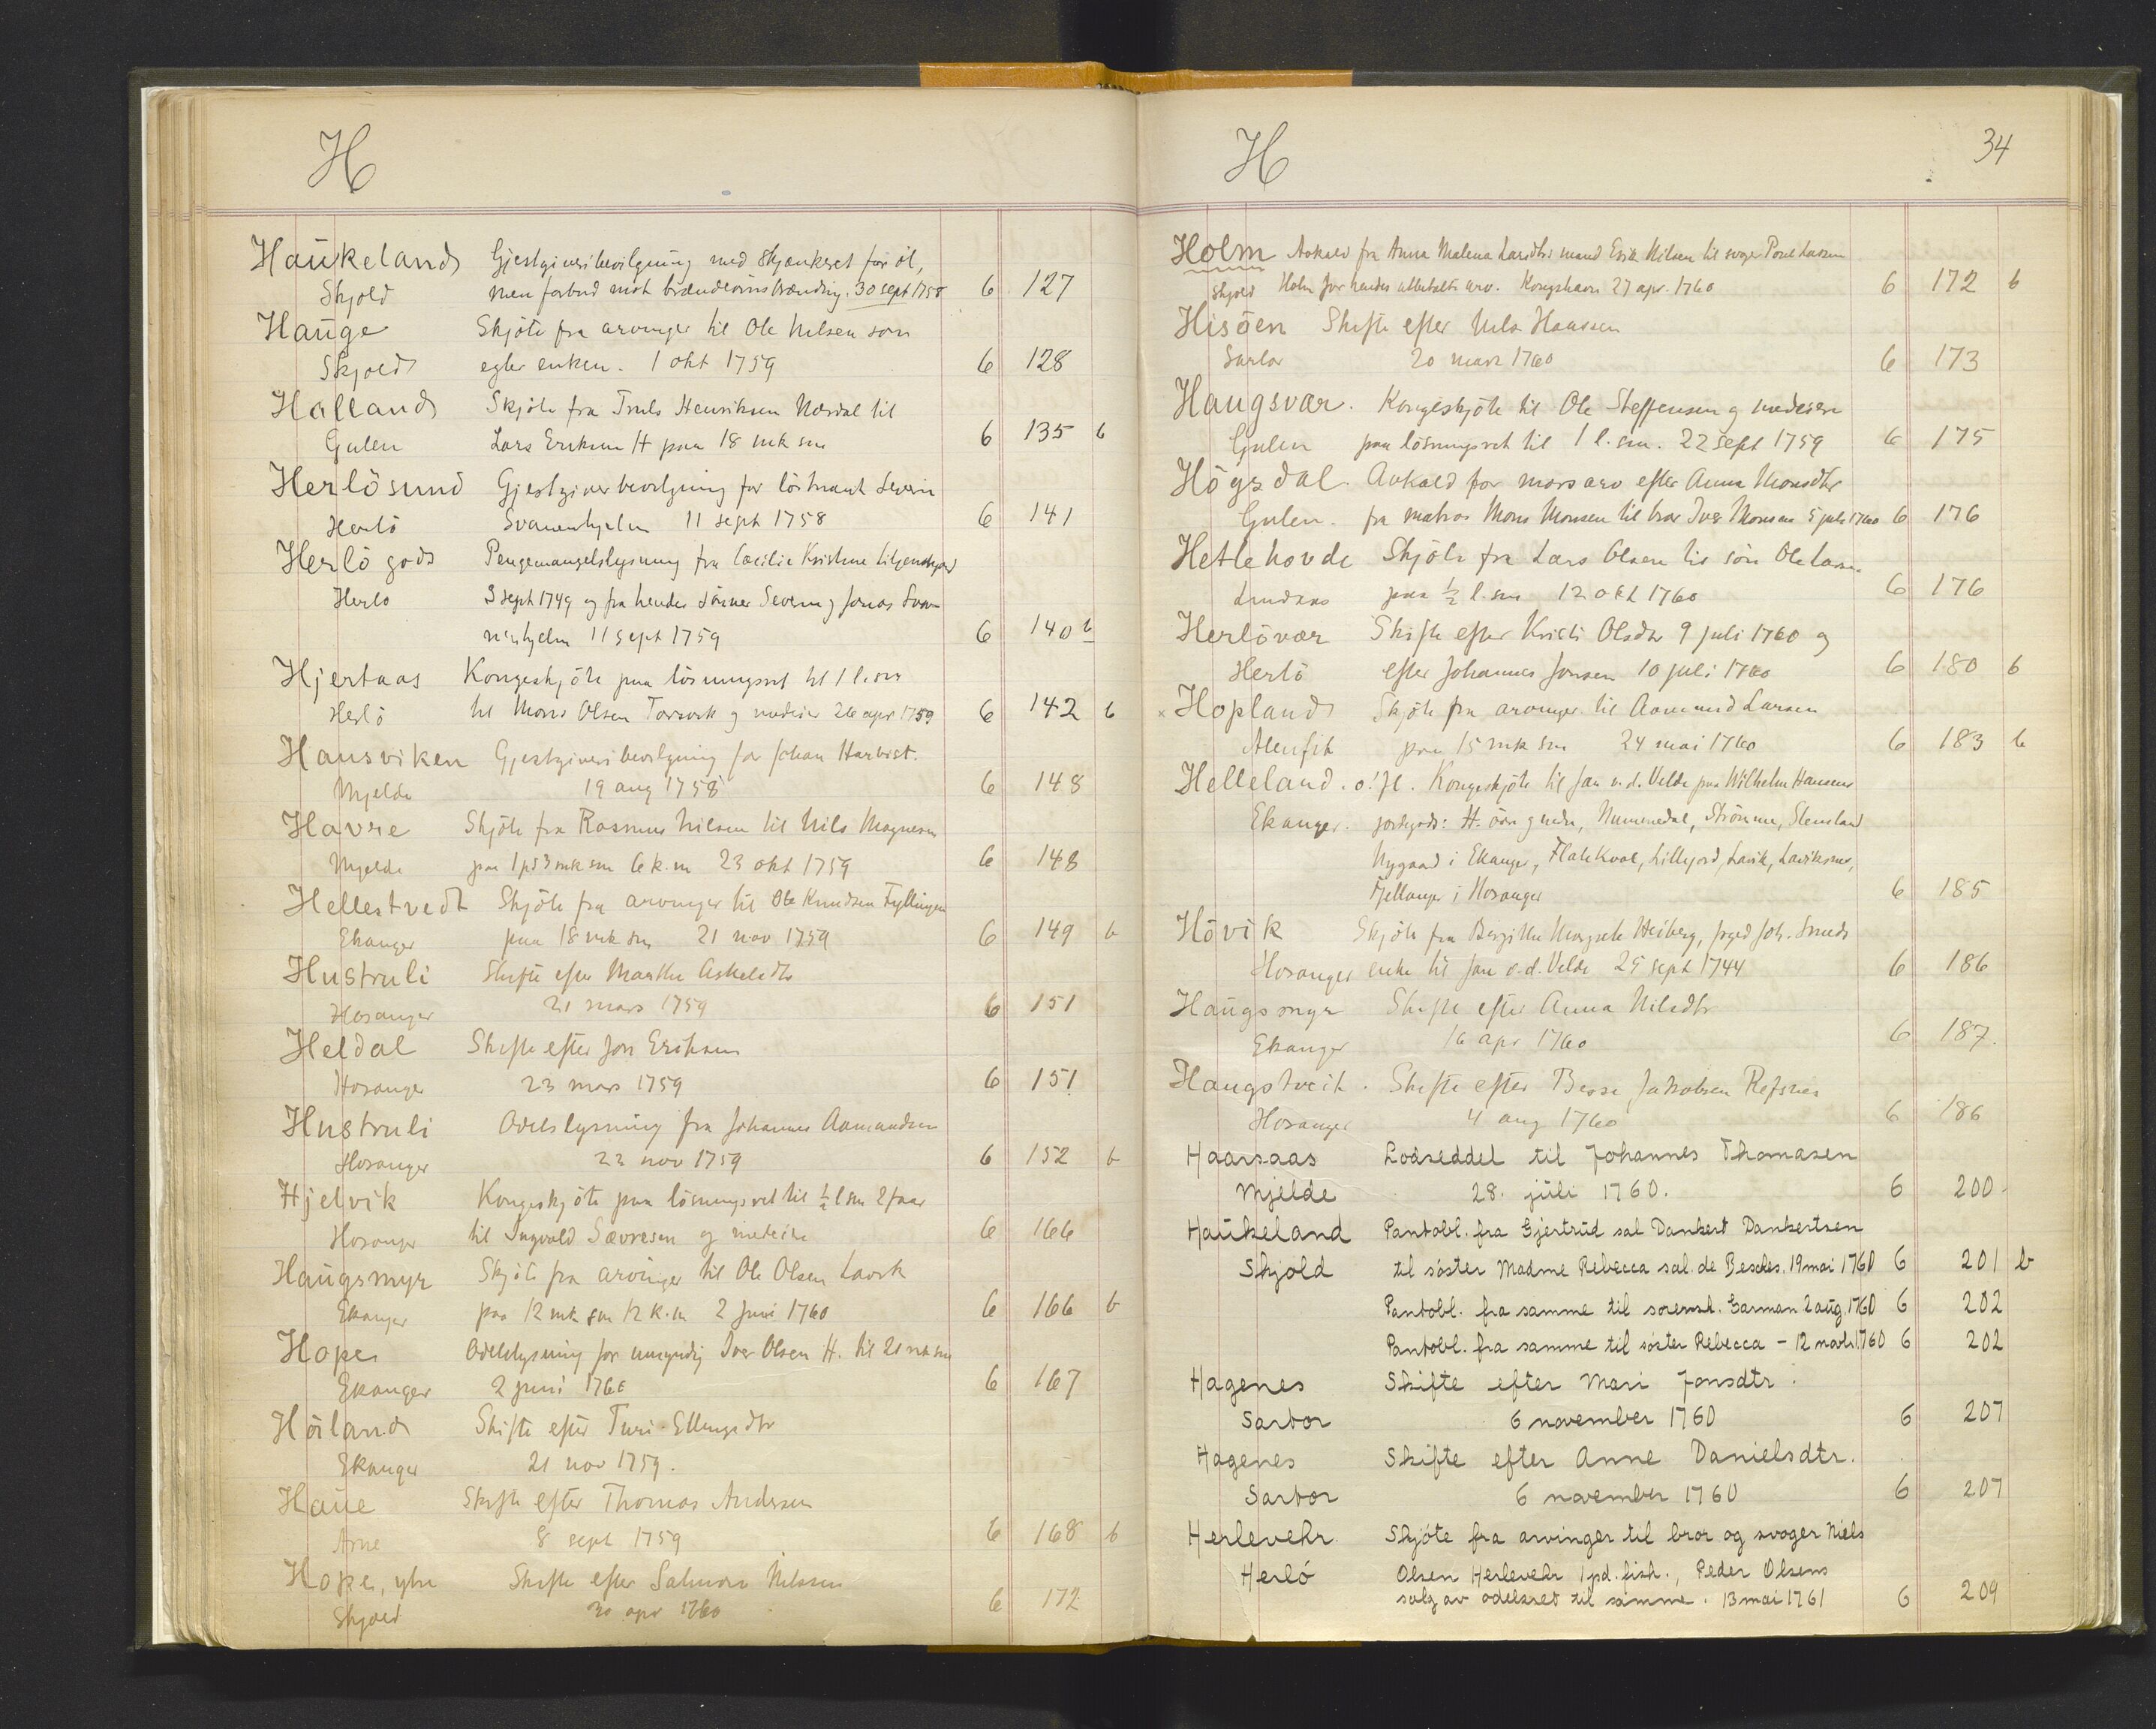 H
Haukeland Gjestgiveribevilgning med skjenkeret for öl,
Skjold men forbud mot brændevinsbrænding. 30 sept 1758 6 127
Hauge Skjöte fra arvinger til Ole Nilsen som
Skjold egter enken. 1 okt 1759 6 128
Halland Skjöte fra Truls Henriksen Nærdal til
Gulen Lars Eriksen H paa 18 mk sm 6 135 b
Herlösund Gjestgiverbevilgning for löitnant Severin
Herlö Svanenhjelm 11 sept 1758 6 141
Herlö gods Pengemangelslysning fra Cecilie Kristine Liljenskjold
Herlö 3 sept 1749 og fra hendes sönner Severin og Jonas Svan
nenhjelm 11 sept 1759 6 140 b
Hjertaas Kongeskjöte paa lösningsret til 1 l. sm
Herlö til Mons Olsen og medeier 26 apr 1759 6 142 b
Hausviken Gjestgiveribevilgning for Johan Harbist.
Mjelde 19 aug 1758 6 148
Havre Skjöte fra Rasmus Nilsen til Nils Magnesen
Mjelde paa 1 pd 3 mk sm 6 k. m 23 okt 1759 6 148
Hellestvedt Skjöte fra arvinger til Ole Knudsen Fyllingen
Ekanger paa 18 mk sm 21 nov 1759 6 149 b
Hustruli Skifte efter Marthe Askelsdtr
Hosanger 21 mars 1759 6 151
Heldal Skifte efter Jon Eriksen
Hosanger 23 mars 1759 6 151
Hustruli Odelslysning fra Johannes Aamundsen
Hosanger 22 nov 1759 6 152 b
Hjelvik Kongeskjöte paa lösningsret til ½ l sm 2 faar
Hosanger til Ingvald Sævresen og medeier 6 166
Haugsmyr Skjöte fra arvinger til Ole Olsen Lavik
Ekanger paa 12 mk sm 12 k. m 2 juni 1760 6 166 b
Hope Odelslysning for umyndig Iver Olsen H. til 21 mk sm
Ekanger 2 juni 1760 6 167
Höiland Skifte efter Turi Ellingsdtr
Ekanger 21 nov 1759.
Haue Skifte efter Thomas Andersen
Arne 8 sept 1759 6 168 b
Hope, ytre Skifte efter Salmon Nilssen
Skjold 30 apr 1760 6 172
H 34
Holm Avkald fra Anna Malena Larsdtrs mand Erik Nilsen til svoger Poul Larsen
Skjold Holm for hendes utbetalte arv. Kongshavn 27 apr. 1760 6 172 b
Hisöen Skifte efter Nils Hansen
Sartor 20 mars 1760 6 173
Haugsvær. Kongeskjöte til Ole Steffensen og medeiere
Gulen paa lösningsret til 1 l. sm. 22 sept 1759 6 175
Högsdal. Avkald for morsarv efter Anna Monsdtr
Gulen. fra matros Mons Monsen til bror Iver Monsen 5 juli 1760 6 176
Hetlehovde Skjöte fra Lars Olsen til sön Ole Larsen
Lindaas paa ½ l. sm 12 okt 1760 6 176
Herlövær Skifte efter Kristi Olsdtr 9 juli 1760 og
Herlö efter Johannes Jonsen 10 juli 1760 6 180 b
x Hopland Skjöte fra arvinger til Aamund Larsen
Alenfit paa 15 mk sm 24 mai 1760 6 183 b
Helleland. o. fl. Kongeskjöte til Jan v. d. Velde paa Wilhelm Hansens
Ekanger. jordgods: H. övre g nedre, Nummedal, Strömme, Stensland
Nygaard i Ekanger, Flatekval, Lillefjord, Lavik, Laviksnes,
Fjellanger i Hosanger 6 185
Hövik Skjöte fra Bergitte Margrete Heiberg, Joh. Smeds
Hosanger enke til Jan v. d. Velde 25 sept 1744 6 186
Haugsmyr Skifte efter Anna Nilsdtr
Ekanger 16 apr 1760 6 187.
Haugstveit. Skifte efter Besse Jakobsen Refsnes
Hosanger 4 aug 1760 6 186
Haarsaas Lodseddel til Johannes Thomasen
Mjelde 28. juli 1760. 6 200.
Haukeland Pantobl. fra Gjertrud sal Dankert Dankertsen
Skjold til söster Madme Rebecca sal. de Besches. 19 mai 1760 6 201 b
Pantobl. fra samme til sorensk. Garman 2 aug. 1760 6 202
Pantobl. fra samme til söster Rebecca – 12 novb. 1760 6 202
Hagenes Skifte efter Mari Jonsdtr.
Sartor 6 november 1760 6 207
Hagenes Skifte efter Anne Danielsdtr.
Sartor 6 november 1760 6 207
Herlevehr Skjöte fra arvinger til bror og svoger Niels
Herló Olsen Herlevehr 1 pd. fisk., Peder Olsens
salg av odelsret til samme. 13 mai 1761 6 209